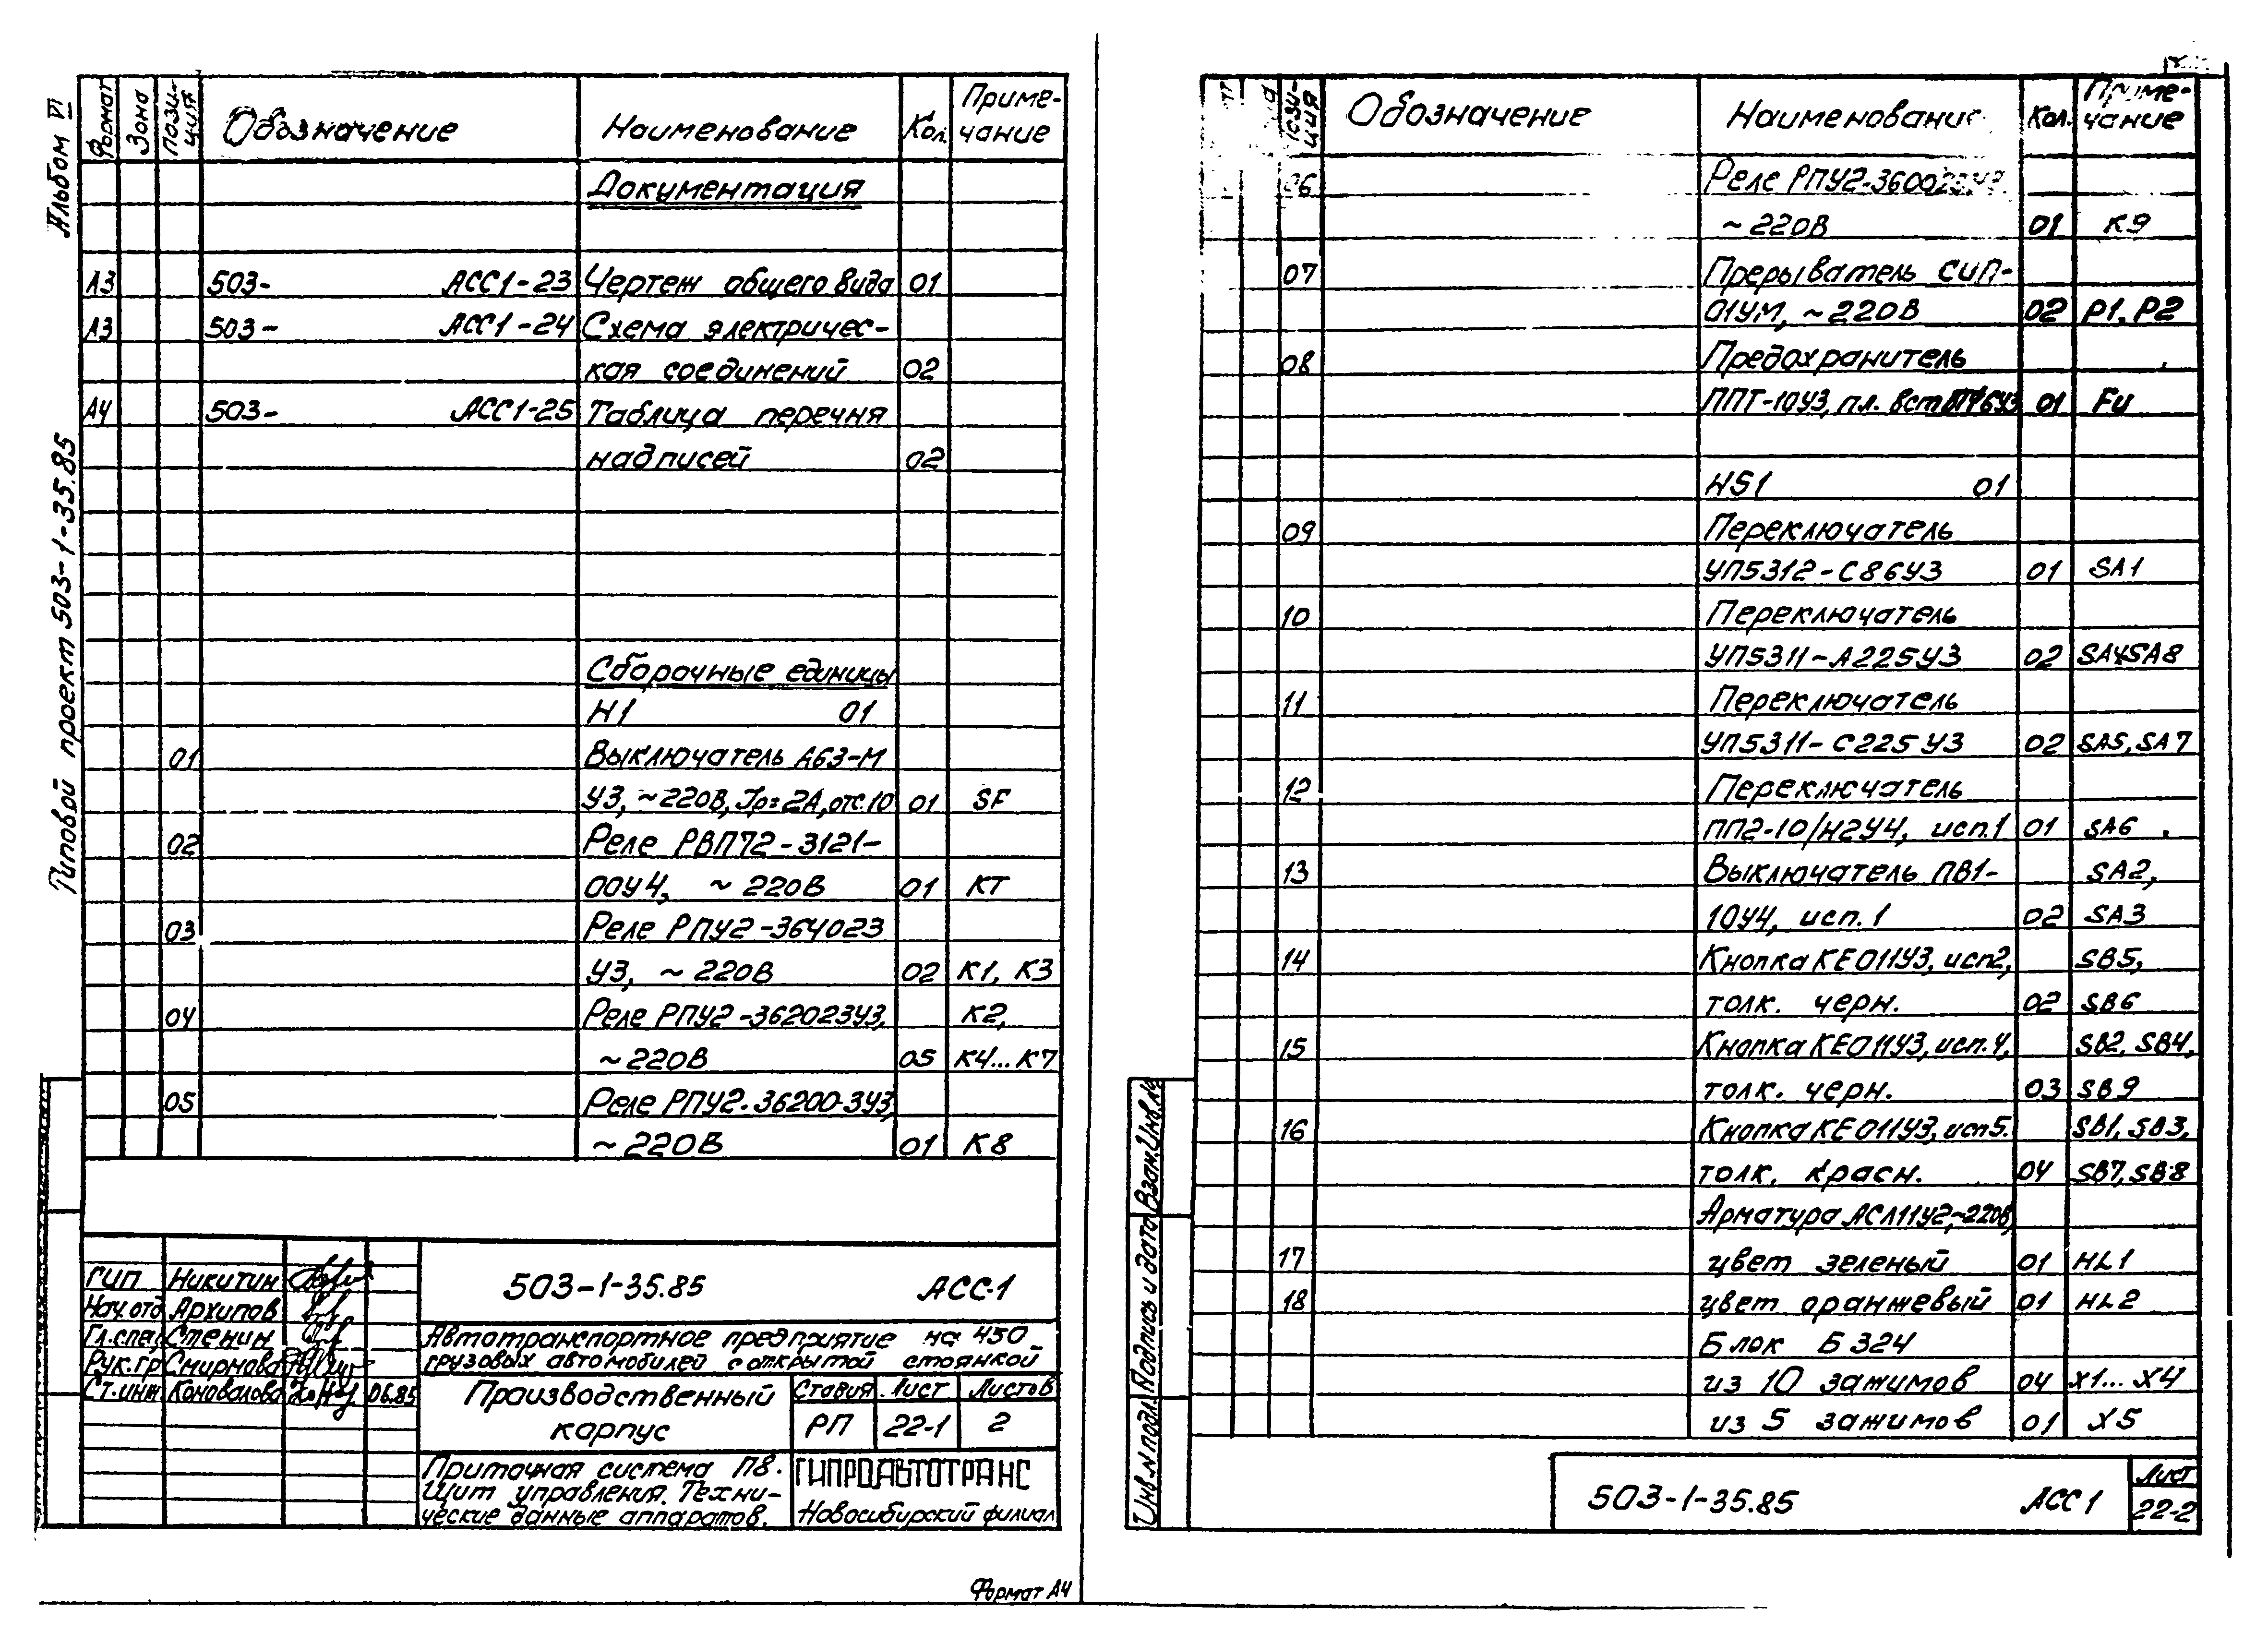 Альбом VI
Типовой проект 503-1-35.85
Формат Зона Пози-ция Обозначение Наименование Кол. Приме-чание
Документация
А3 503- АСС1-23 Чертеж общего вида 01
А3 503- АСС1-24 Схема электричес-
кая соединений 02
А4 503- АСС1-25 Таблица перечня
надписей 02
Сборочные единицы
Н1 01
01 Выключатель А63-М
У3, ~220В, Iр=2А, отс.10 01 SF
02 Реле РВП72-3121-
00У4, ~220В 01 КТ
03 Реле РПУ2-364023
У3, ~220В 02 К1, К3
04 Реле РПУ2-362023У3, К2,
~220В 05 К4...К7
05 Реле РПУ2-36200-3У3,
~220В 01 К8
ГИП Никитин
Нач.отд Архипов
Гл.спец. Стенин
Рук.гр Смирнова
Ст.инж Коновалова 06.85
503-1-35.85 АСС-1
Автотранспортное предприятие на 450
грузовых автомобилей с открытой стоянкой
Производственный
корпус
Стадия Лист Листов
РП 22-1 2
Приточная система П8.
Щит управления. Техни-
ческие данные аппаратов.
ГИПРОАВТОТРАНС
Новосибирский филиал
Формат А4
Пози-ция Обозначение Наименование Кол. Приме-чание
06 Реле
~220В 01 К9
07 Прерыватель СИП-
01УМ, ~220В 02 Р1, Р2
08 Предохранитель
ППТ-10У3, пл. вст. 01 FU
HS1 01
09 Переключатель
УП5312-С86У3 01 SA1
10 Переключатель
УП5311-А225У3 02 SA4, SA8
11 Переключатель
УП5311-С225У3 02 SA5, SA7
12 Переключатель
ПП2-10/Н2У4, исп.1 01 SA6
13 Выключатель ПВ1- SA2,
10У4, исп. 1 02 SA3
14 Кнопка КЕ011У3, исп2, SB5,
толк. черн. 02 SB6
15 Кнопка КЕ011У3, исп.4, SB2, SB4,
толк. черн. 03 SB9
16 Кнопка КЕ011У3, исп5. SB1, SB3,
толк. красн. 04 SB7, SB8
Арматура АСЛ11У2,~220В,
17 цвет зеленый 01 HL1
18 цвет оранжевый 01 HL2
Блок Б324
из 10 зажимов 04 Х1...Х4
из 5 зажимов 01 Х5
Взам.Инв.№
Подпись и дата
Инв.№ подл.
503-1-35.85 АСС1
Лист
22-2